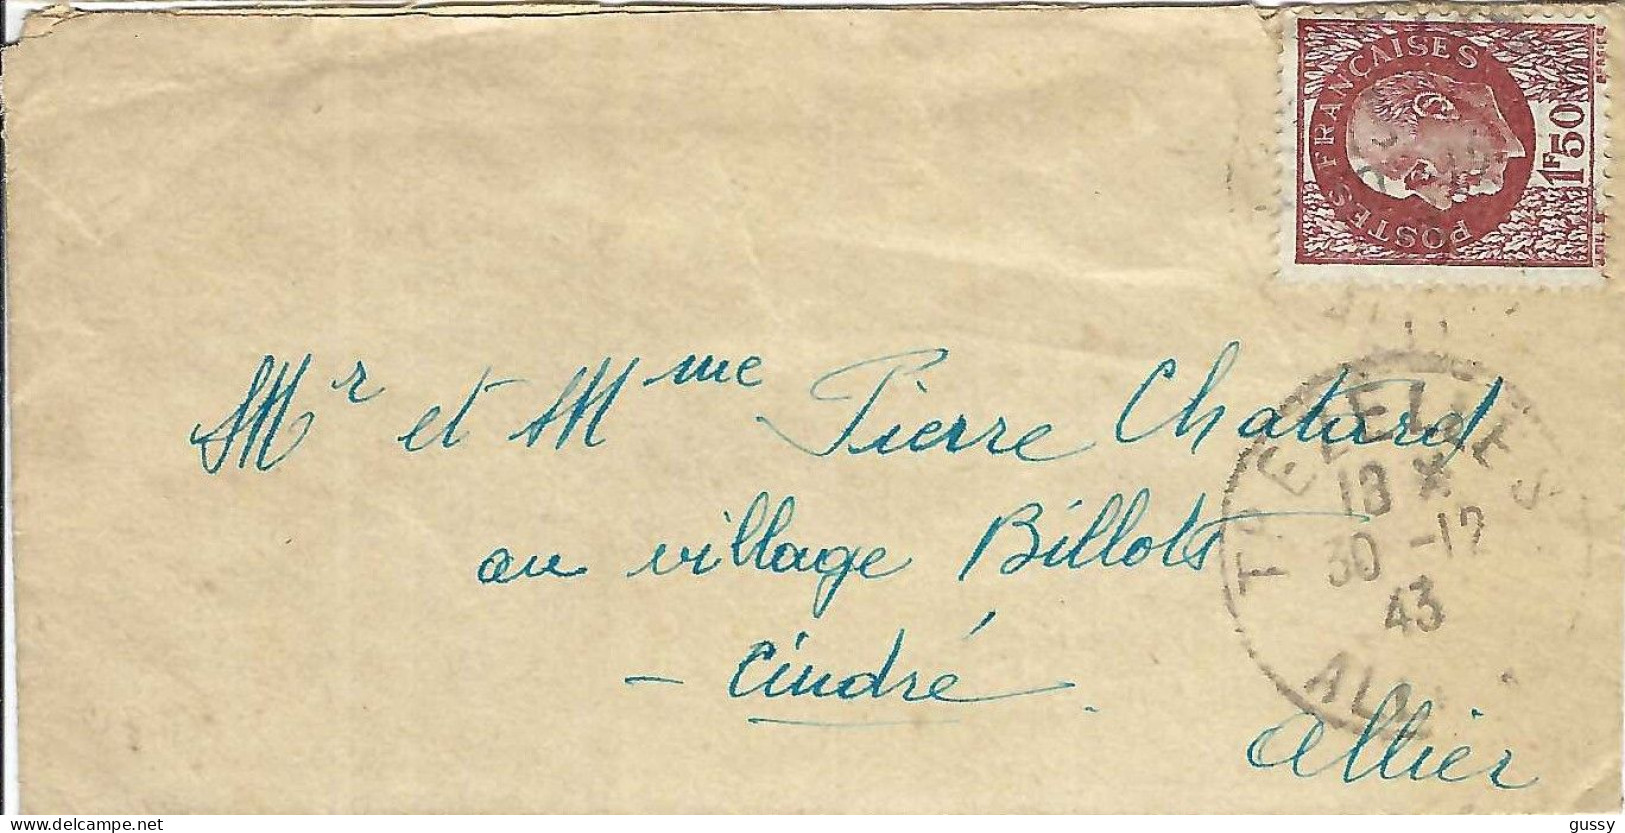 POSTES FRANÇAISES
1F50
Mr et Mme Pierre Chatard
au village Billots
- Cindré
Allier
TREZELLES
18 *
30 -12
43
ALLIER
delcampe.net
gussy